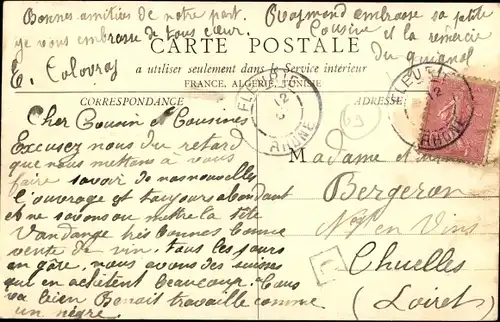 Bonnes amitiés de notre part.
je vous embrasse de tous cœur.
E. Colovray
Raymond embrasse sa petite
Cousine et la remercie
du guignol
CARTE POSTALE
a utiliser seulement dans le Service intérieur
FRANCE, ALGÉRIE, TUNISIE
CORRESPONDANCE
ADRESSE:
FLEURIE
12
RHONE
FLEURIE
12
RHONE
69
Cher Cousin et Cousines
Excusez nous du retard
que nous mettons a vous
faire savoir de nos nouvelles
l'ouvrage et toujours abondant
et ne savons ou mettre la tête
Vandange très bonnes bonne
vente de vin, tous les jours
en gâre, nous avons des suisses
qui en achètent beaucoup. Tous
va bien Benoit travaille comme
un nègre.
Madame et
Bergeron
Nég en Vins
Chuelles
(Loiret)